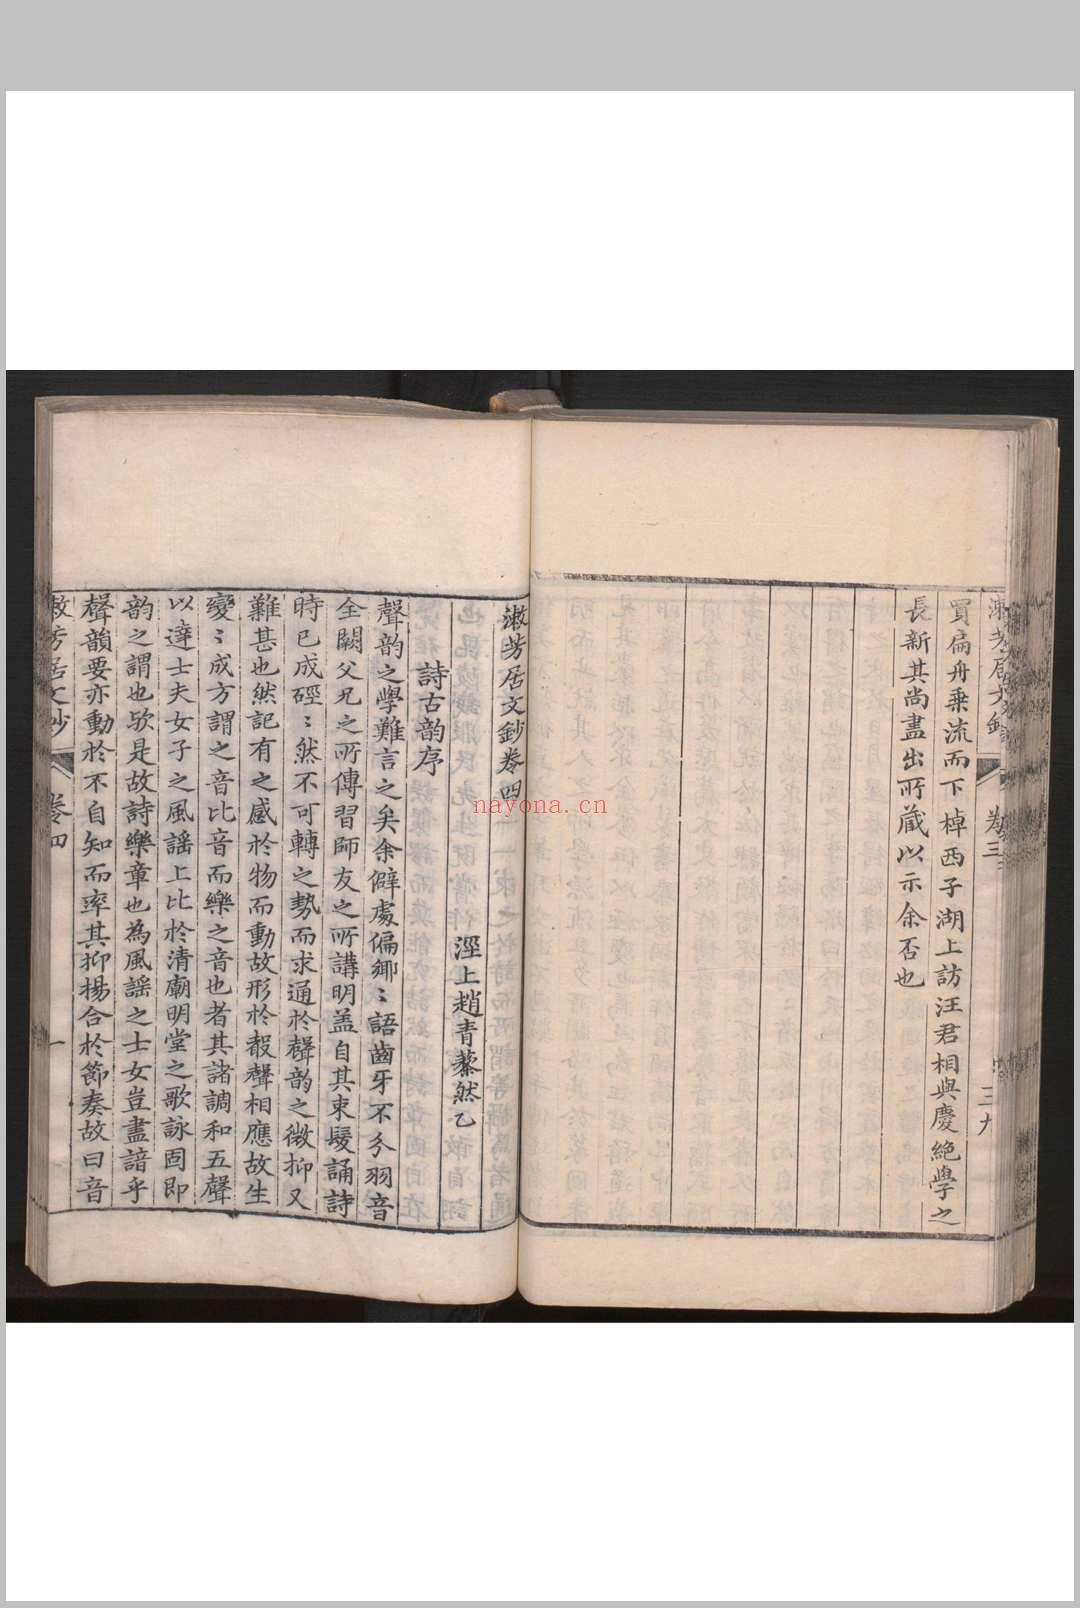 漱芳居文鈔
卷三
三九
買扁舟乗流而下棹西子湖上訪汪君相與慶絶學之
長新其尚盡出所蔵以示余否也
漱芳居文鈔卷四
涇上趙青藜然乙
詩古韵序
聲韵之學難言之矣余僻處偏鄉〻語齒牙不分羽音
全闕父兄之所傳習師友之所講明盖自其束髮誦詩
時已成硜〻然不可轉之勢而求通於聲韵之微抑又
難甚也然記有之感於物而動故形於聲聲相應故生
變〻成方謂之音比音而樂之音也者其諸調和五聲
以達士夫女子之風謡上比於清廟明堂之歌詠固即
韵之謂也欤是故詩樂章也為風謡之士女豈盡諳乎
聲韻要亦動於不自知而率其抑揚合於節奏故曰音
漱芳居文鈔
卷四
一
nayona.cn